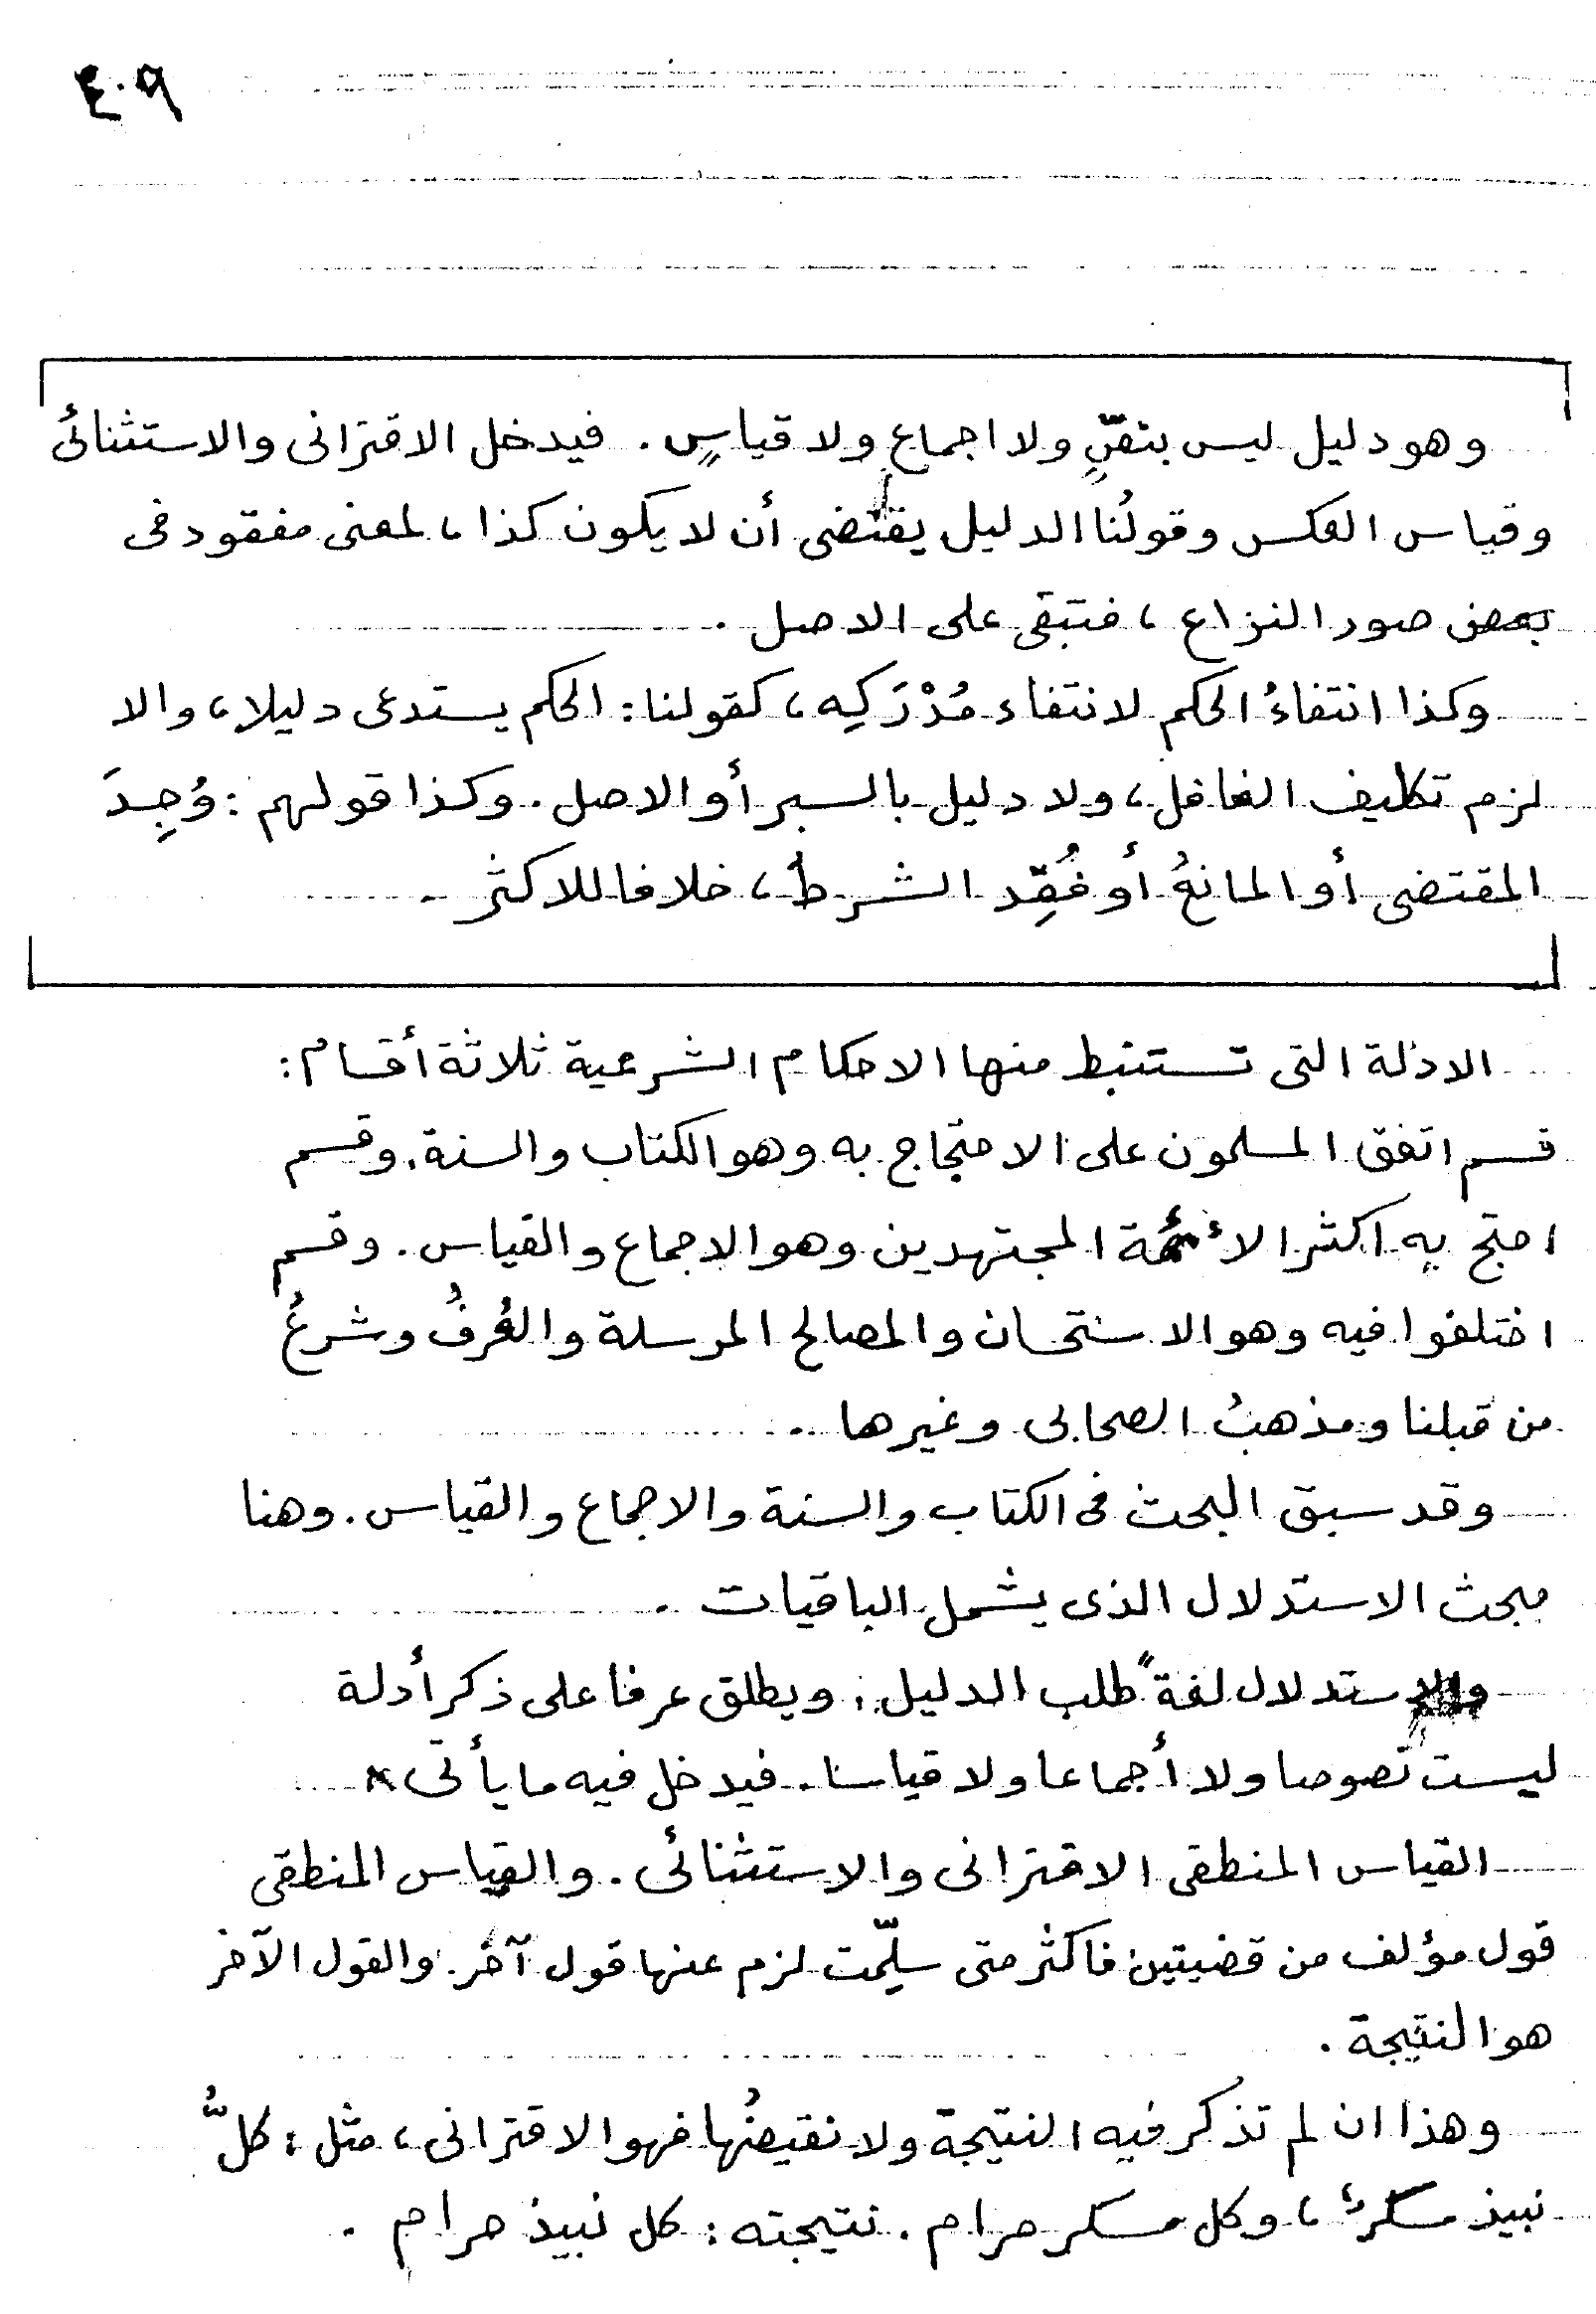 ٤٠٩
وهو دليل ليس بنصٍّ ولا اجماعٍ ولا قياسٍ. فيدخل الاقترانى والاستثنائى
وقياس العكس وقولُنا الدليل يقتضى أن لا يكون كذا، لمعنى مفقود فى
بعض صور النزاع، فتبقى على الاصل.
وكذا انتفاءُ الحكم لانتفاء مُدْرَكِه، كقولنا: الحكم يستدعى دليلا، والا
لزم تكليف الغافل، ولا دليل بالسبر أو الاصل. وكذا قولهم: وُجِدَ
المقتضى أو المانعُ أو فُقِد الشرطُ، خلافا للاكثر.
الادلة التى تستنبط منها الاحكام الشرعية ثلاثة أقسام:
قسم اتفق المسلمون على الاحتجاج به وهو الكتاب والسنة. وقسم
احتج به اكثر الأئمة المجتهدين وهو الاجماع والقياس. وقسم
اختلفوا فيه وهو الاستحسان والمصالح المرسلة والعُرفُ وشرعُ
من قبلنا ومذهبُ الصحابى وغيرها..
وقد سبق البحث فى الكتاب والسنة والاجماع والقياس. وهنا
مبحث الاستدلال الذى يشمل الباقيات.
والاستدلال لغةً طلب الدليل. ويطلق عرفا على ذكر أدلة
ليست نصوصا ولا أجماعا ولا قياسا. فيدخل فيه ما يأتى
القياس المنطقى الاقترانى والاستثنائى. والقياس المنطقى
قول مؤلف من قضيتين فاكثر متى سلِّمت لزم عنها قول آخر. والقول الآخر
هو النتيجة.
وهذا ان لم تذكر فيه النتيجة ولا نقيضُها فهو الاقترانى، مثل: كلُّ
نبيذ مسكرٌ، وكل مسكر حرام. نتيجته: كل نبيذ حرام.